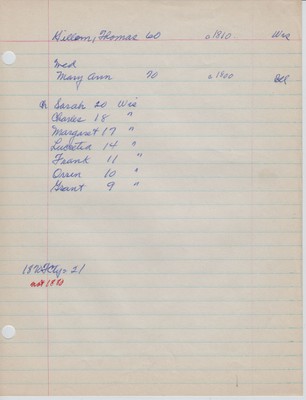 Gillom, Thomas 60 c1810 Wis
wed
Mary Ann 70 c1800 Del
ch Sarah 20 Wis
Charles 18 "
Margaret 17 "
Lucretia 14 "
Frank 11 "
Orrin 10 "
Grant 9 "
21
not 1880